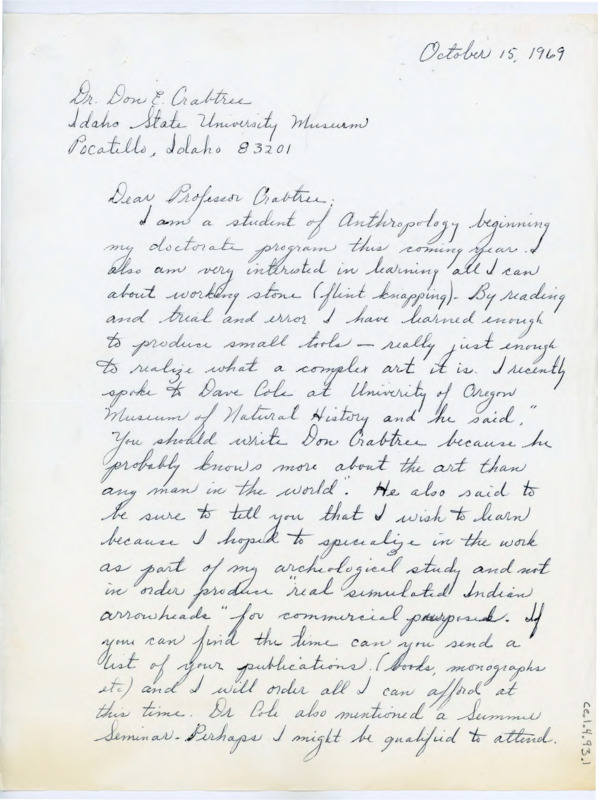 October 15, 1969
Dr. Don E. Crabtree
Idaho State University Museum
Pocatello, Idaho 83201
Dear Professor Crabtree;
I am a student of Anthropology beginning
my doctorate program this coming year. I
also am very interested in learning all I can
about working stone (flint knapping). By reading
and trial and error I have learned enough
to produce small tools — really just enough
to realize what a complex art it is. I recently
spoke to Dave Cole at Univerity of Oregon
Museum of Natural History and he said, "
You should write Don Crabtree because he
probably knows more about the art than
any man in the world". He also said to
be sure to tell you that I wish to learn
because I hoped to specialize in the work
as part of my archeological study and not
in order produce "real simulated Indian
arrowheads" for commercial purposes. If
you can find the time can you send a
list of your publications (books, monographs
etc) and I will order all I can afford at
this time. Dr Cole also mentioned a Summer
Seminar. Perhaps I might be qualified to attend.
cc.1.4.93.1